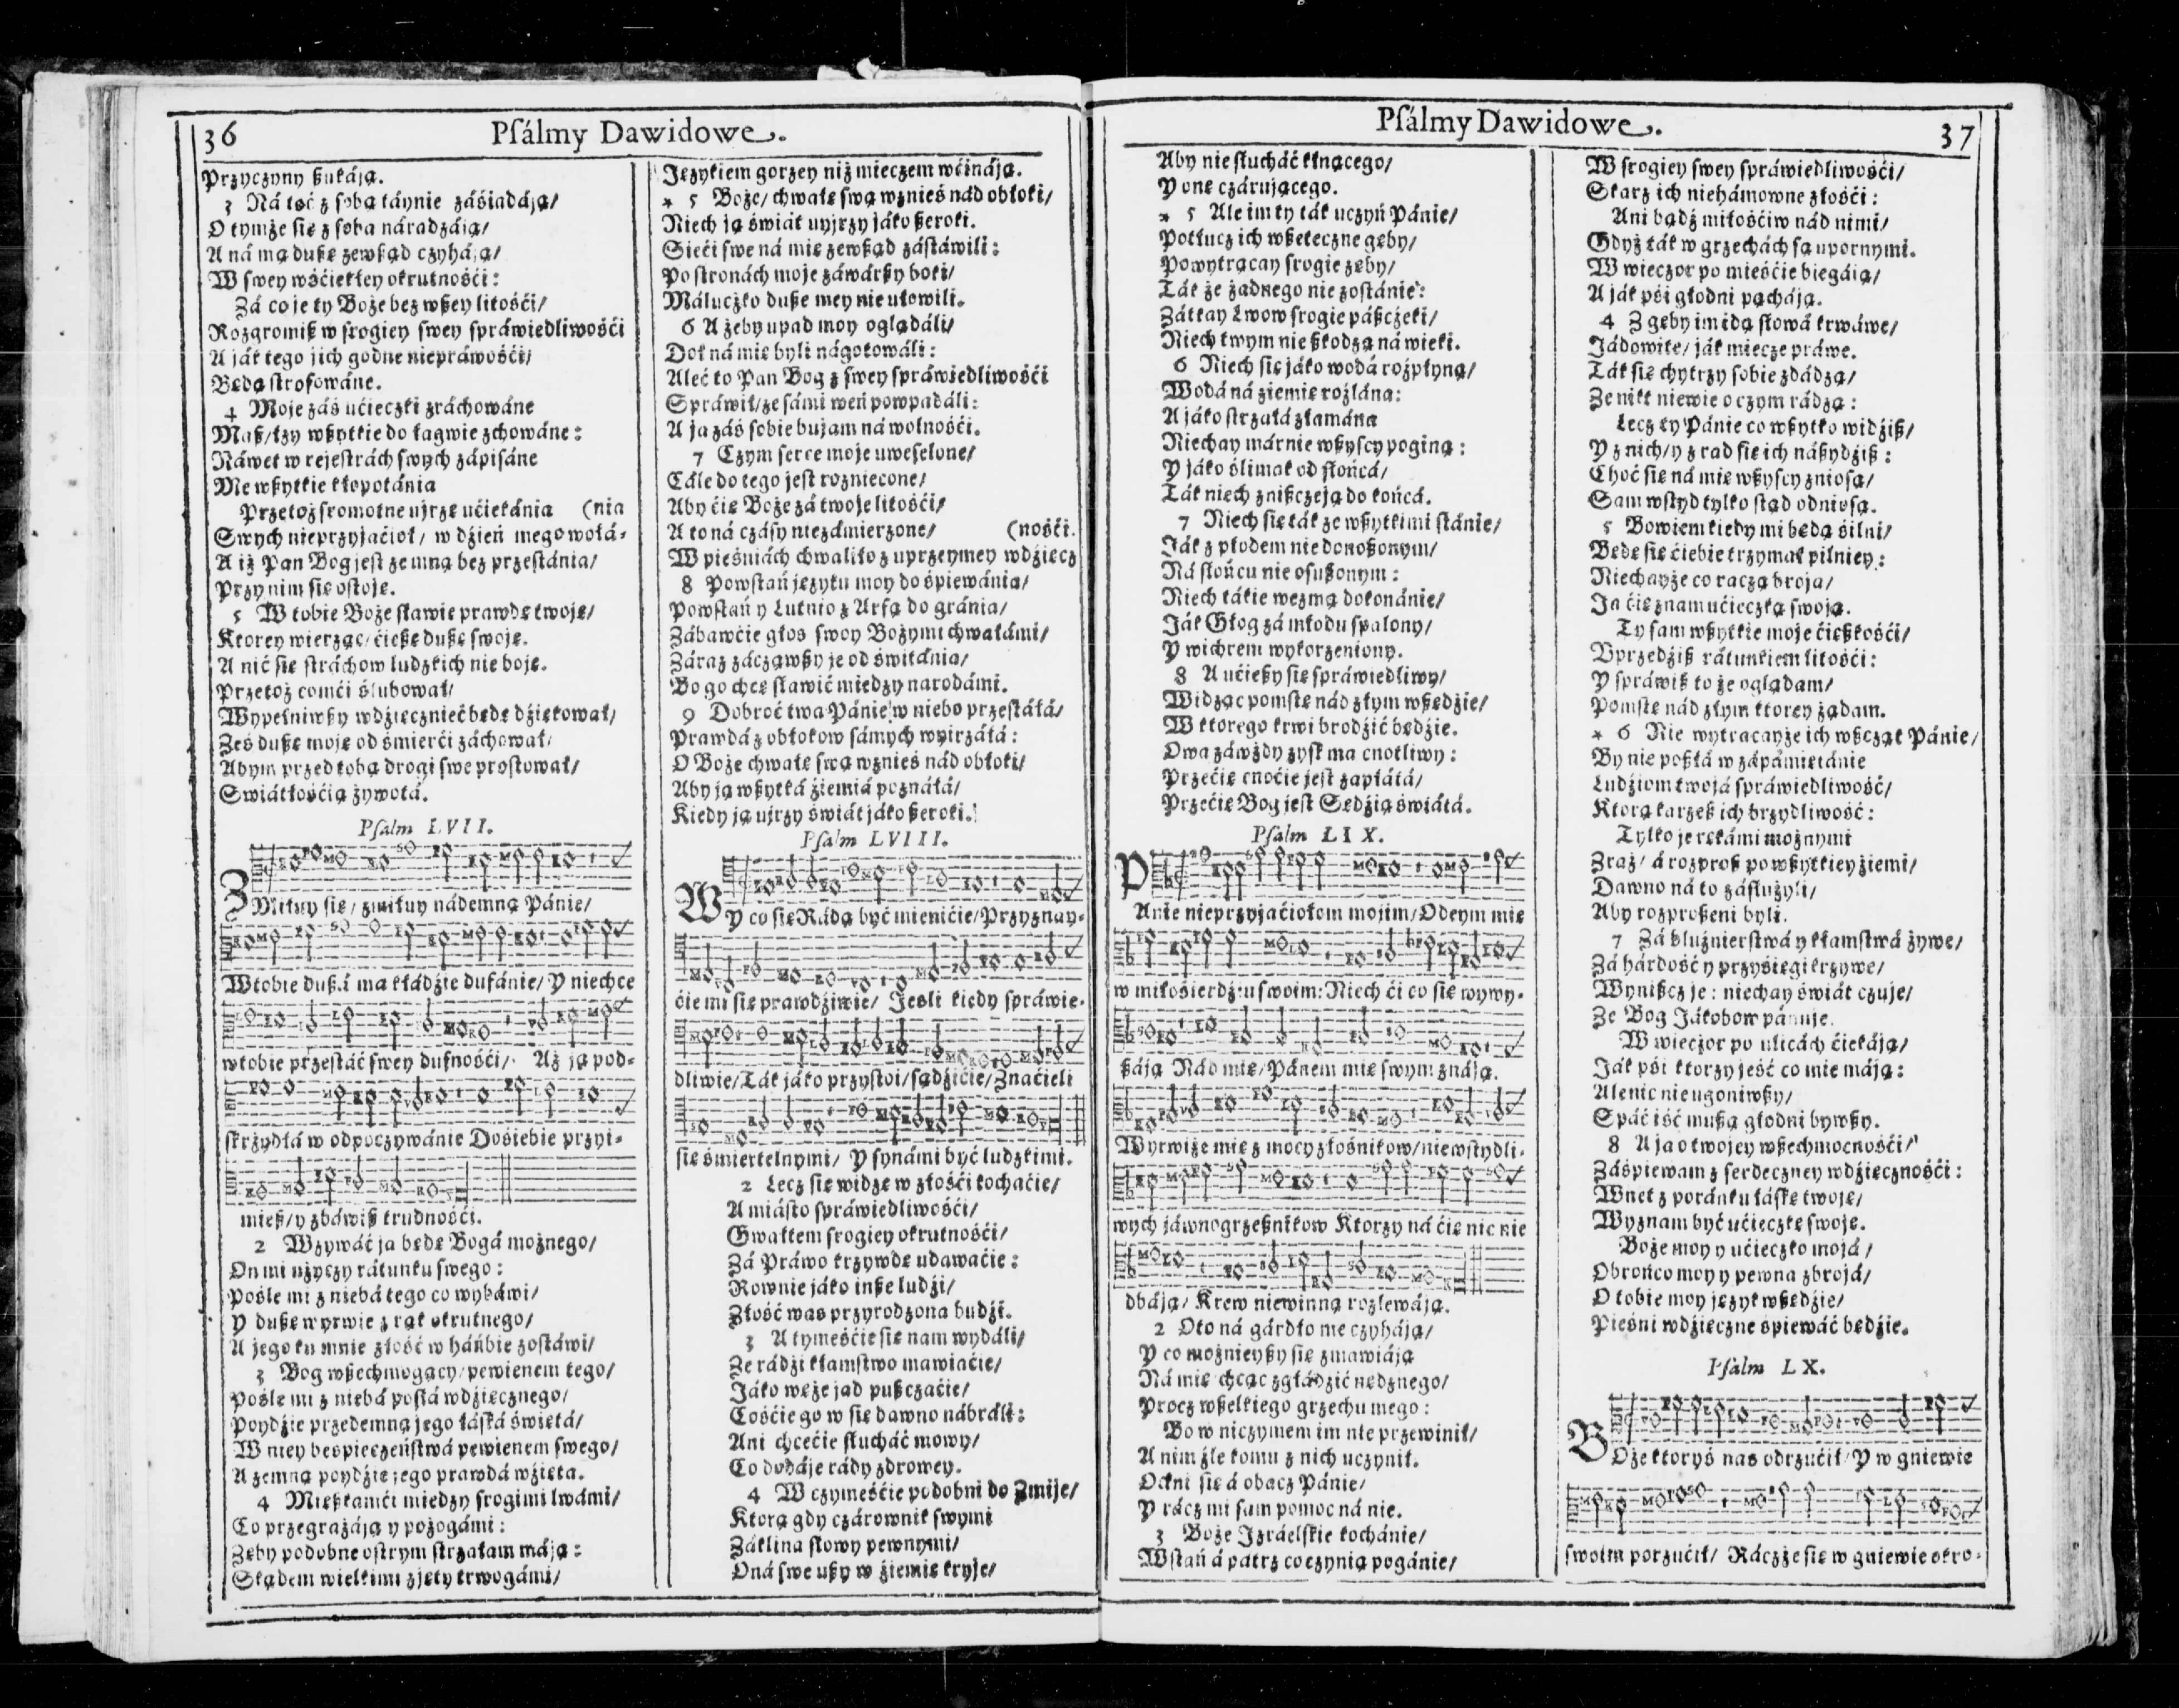 36
Psálmy Dawidowe.
Przyczyny ßukáją.
3 Ná toć z sobą táynie záśiadáją/
O tymże się z sobą náradzáją/
A ná mą dußę zewßąd czyháją/
W swey wśćiekłey okrutnośći:
Zá co je ty Boże bez wßey litośći/
Rozgromiß w srogiey swey spráwiedliwośći
A ják tego jich godne niepráwośći/
Będą strofowáne.
4 Moje záś ućieczki zráchowáne
Maß/ łzy wßytkie do łagwie zchowáne:
Náwet w rejestrách swych zápisáne
Me wßytkie kłopotánia
Przetoż sromotne ujrzę ućiekánia (nia
Swych nieprzyjaćioł/ w dźień mego wołá-
A iż Pan Bog jest ze mną bez przestánia/
Przy nim się ostoję.
5 W tobie Boże sławię prawdę twoję/
Ktorey wierząc/ ćießę dußę swoję.
A nić się stráchow ludzkich nie boję.
Przetoż comći ślubował/
Wypełniwßy wdźięcznieć będę dźiękował/
Żeś dußę moję od śmierći záchował/
Abym przed tobą drogi swe prostował/
Swiátłośćią żywotá.
Psalm LVII.
ZMiłuy się/ zmiłuy nádemną Pánie/
W tobie dußá ma kłádźie dufánie/ Y niechce
w tobie przestáć swey dufnośći/ Aż ją pod-
skrzydłá w odpoczywánie Do śiebie przyi-
mieß/ y zbáwiß trudnośći.
2 Wzywáć ja będę Bogá możnego/
On mi użyczy rátunku swego:
Pośle mi z niebá tego co wybáwi/
Y dußę wyrwie z rąk okrutnego/
A jego ku mnie złość w háńbie zostáwi/
3 Bog wßechmogący/ pewienem tego/
Pośle mi z niebá posłá wdźięcznego/
Poydźie przedemną jego łáská świętá/
W niey bespieczeństwá pewienem swego/
A zemną poydźie jego prawdá wźięta.
4 Mießkamći między srogimi lwámi/
Co przegrażáją y pożogámi:
Zęby podobne ostrym strzałam máją:
Skądem wielkimi zjęty trwogámi/
Językiem gorzey niż mieczem wćináją.
* 5 Boże/ chwałę swą wznieś nád obłoki/
Niech ją świát uyjrzy jáko ßeroki.
Sieći swe ná mię zewßąd zástáwili:
Po stronách moje záwárßy boki/
Máluczko duße mey nie ułowili.
6 A żeby upad moy oglądáli/
Doł ná mię byli nágotowáli:
Aleć to Pan Bog z swey spráwiedliwośći
Spráwił/ że sámi weń powpadáli:
A ja záś sobie bujam ná wolnośći.
7 Czym serce moje uweselone/
Cále do tego jest rozniecone/
Aby ćię Boże zá twoje litośći/
A to ná czásy niezámierzone/ (nośći.
W pieśniách chwaliło z uprzeymey wdźięcz
8 Powstań języku moy do śpiewánia/
Powstań y Lutnio z Arfą do gránia/
Zábawćie głos swoy Bożymi chwałámi/
Záraz zácząwßy je od świtánia/
Bo go chcę sławić miedzy narodámi.
9 Dobroć twa Pánie w niebo przestáłá/
Prawdá z obłokow sámych wyirzáłá:
O Boże chwałę swą wznieś nád obłoki/
Aby ją wßytká źiemiá poznáłá/
Kiedy ją ujrzy świát jáko ßeroki.
Psalm LVIII.
WY co się Rádą być mienićie/ Przyznay-
ćie mi się prawdźiwie/ Jesli kiedy spráwie-
dliwie/ Ták jáko przystoi/ sądźićie/ Znaćieli
się śmiertelnymi/ Y synámi być ludzkimi.
2 Lecz się widzę w złośći kochaćie/
A miásto spráwiedliwośći/
Gwałtem srogiey okrutnośći/
Zá Práwo krzywdę udawaćie:
Rownie jáko inße ludźi/
Złość was przyrodzona budźi.
3 A tymeśćie się nam wydáli/
Ze rádźi kłamstwo mawiaćie/
Jáko węże jad pußczaćie/
Cośćie go w się dawno nábráli:
Ani chcećie słucháć mowy/
Co dodáje rády zdrowey.
4 W czymeśćie podobni do Zmije/
Ktorą gdy czárownik swymi
Záklina słowy pewnymi/
Oná swe ußy w źiemię kryje/
Psálmy Dawidowe.
37
Aby nie słucháć klnącego/
Y onę czárującego.
* 5 Ale im ty ták uczyń Pánie/
Potłucz ich wßeteczne gęby/
Powytrącay srogie zęby/
Ták że żadnego nie zostánie:
Zátkay Lwow srogie páßczeki/
Niech twym nie ßkodzą ná wieki.
6 Niech się jáko wodá rozpłyną/
Wodá ná źiemię rozlána:
A jáko strzáłá złamána
Niechay márnie wßyscy poginą:
Y jáko ślimak od słońcá/
Ták niech znißczeją do końcá.
7 Niech się ták ze wßytkimi stánie/
Ják z płodem nie donoßonym/
Ná słońcu nie osußonym:
Niech tákie wezmą dokonánie/
Ják Głog zá młodu spalony/
Y wichrem wykorzeniony.
8 A ućießy się spráwiedliwy/
Widząc pomstę nád złym wßędźie/
W ktorego krwi brodźić będźie.
Owa záwżdy zysk ma cnotliwy:
Przećię cnoćie jest zapłátá/
Przećię Bog jest Sędźią świátá.
Psalm LIX.
PAnie nieprzyjaćiołom mojim/ Odeym mię
w miłośierdźiu swoim: Niech ći co się wywy-
ßáją Nád mię/ Pánem mię swym znáją.
Wyrwiże mię z mocy złośnikow/ niewstydli-
wych jáwnogrzeßnikow Ktorzy ná ćię nic nie
dbáją/ Krew niewinną rozlewáją.
2 Oto ná gárdło me czyháją/
Y co możnieyßy się zmawiáją
Ná mię chcąc zgłádzić nędznego/
Procz wßelkiego grzechu mego:
Bo w niczymem im nie przewinił/
A nim źle komu z nich uczynił.
Ockni się á obacz Pánie/
Y rácz mi sam pomoc ná nie.
3 Boże Izráelskie kochánie/
Wstań á pátrz co czynią pogánie/
W srogiey swey spráwiedliwośći/
Skarz ich niehámowne złośći:
Ani bądź miłośćiw nád nimi/
Gdyż ták w grzechách są upornymi.
W wieczor po mieśćie biegáią/
A ják pśi głodni pącháją.
4 Z gęby im idą słowá krwáwe/
Jádowite/ ják miecze práwe.
Ták się chytrzy sobie zdádzą/
Ze nikt niewie o czym rádzą:
Lecz ty Pánie co wßytko widźiß/
Y z nich/ y z rad się ich náßydźiß:
Choć się ná mię wßyscy zniosą/
Sam wstyd tylko stąd odniosą.
5 Bowiem kiedy mi będą śilni/
Będę się ćiebie trzymał pilniey:
Niechayże co raczą broją/
Ja ćię znam ućieczką swoją.
Ty sam wßytkie moje ćięßkośći/
Uprzedźiß rátunkiem litośći:
Y spráwiß to że oglądam/
Pomstę nád złym ktorey żądam.
* 6 Nie wytracayże ich wßcząt Pánie/
By nie poßłá w zápámiętánie
Ludźiom twojá spráwiedliwość/
Ktorą karzeß ich brzydliwość:
Tylko je rękámi możnymi
Zraź/ á rozproß po wßytkiey źiemi/
Dawno ná to zásłużyli/
Aby rozproßeni byli.
7 Zá bluźnierstwá y kłamstwá żywe/
Zá hárdość y przyśięgi krzywe/
Wynißcz je: niechay świát czuje/
Ze Bog Jákobow pánuje.
W wieczor po ulicách ćiekáją/
Ják pśi ktorzy jeść co nie máją:
Ale nic nie ugoniwßy/
Spáć iść mußą głodni bywßy.
8 A ja o twojey wßechmocnośći/
Záśpiewam z serdeczney wdźięcznośći:
Wnet z poránku łáskę twoję/
Wyznam być ućieczkę swoję.
Boże moy y ućieczko mojá/
Obrońco moy y pewna zbrojá/
O tobie moy język wßędźie/
Pieśni wdźięczne śpiewáć będźie.
Psalm LX.
BOże ktoryś nas odrzućił/ Y w gniewie
swoim porzućił/ Ráczże się w gniewie okro-